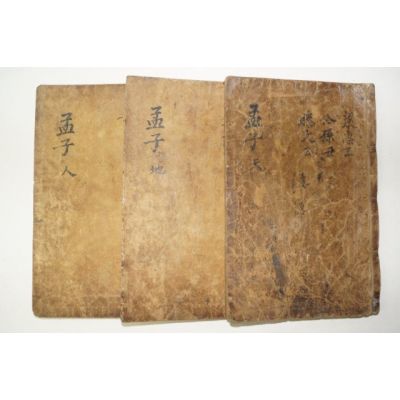 孟子 天
梁惠王
公孫丑
滕文公
孟子 地
孟子 人